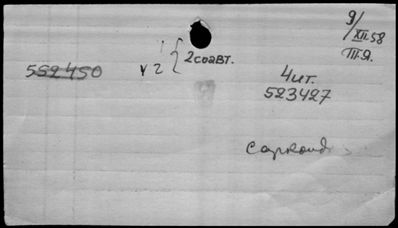 9/XII.58
П.Я.
2 соавт.
552450 У 2
Чит.
523427